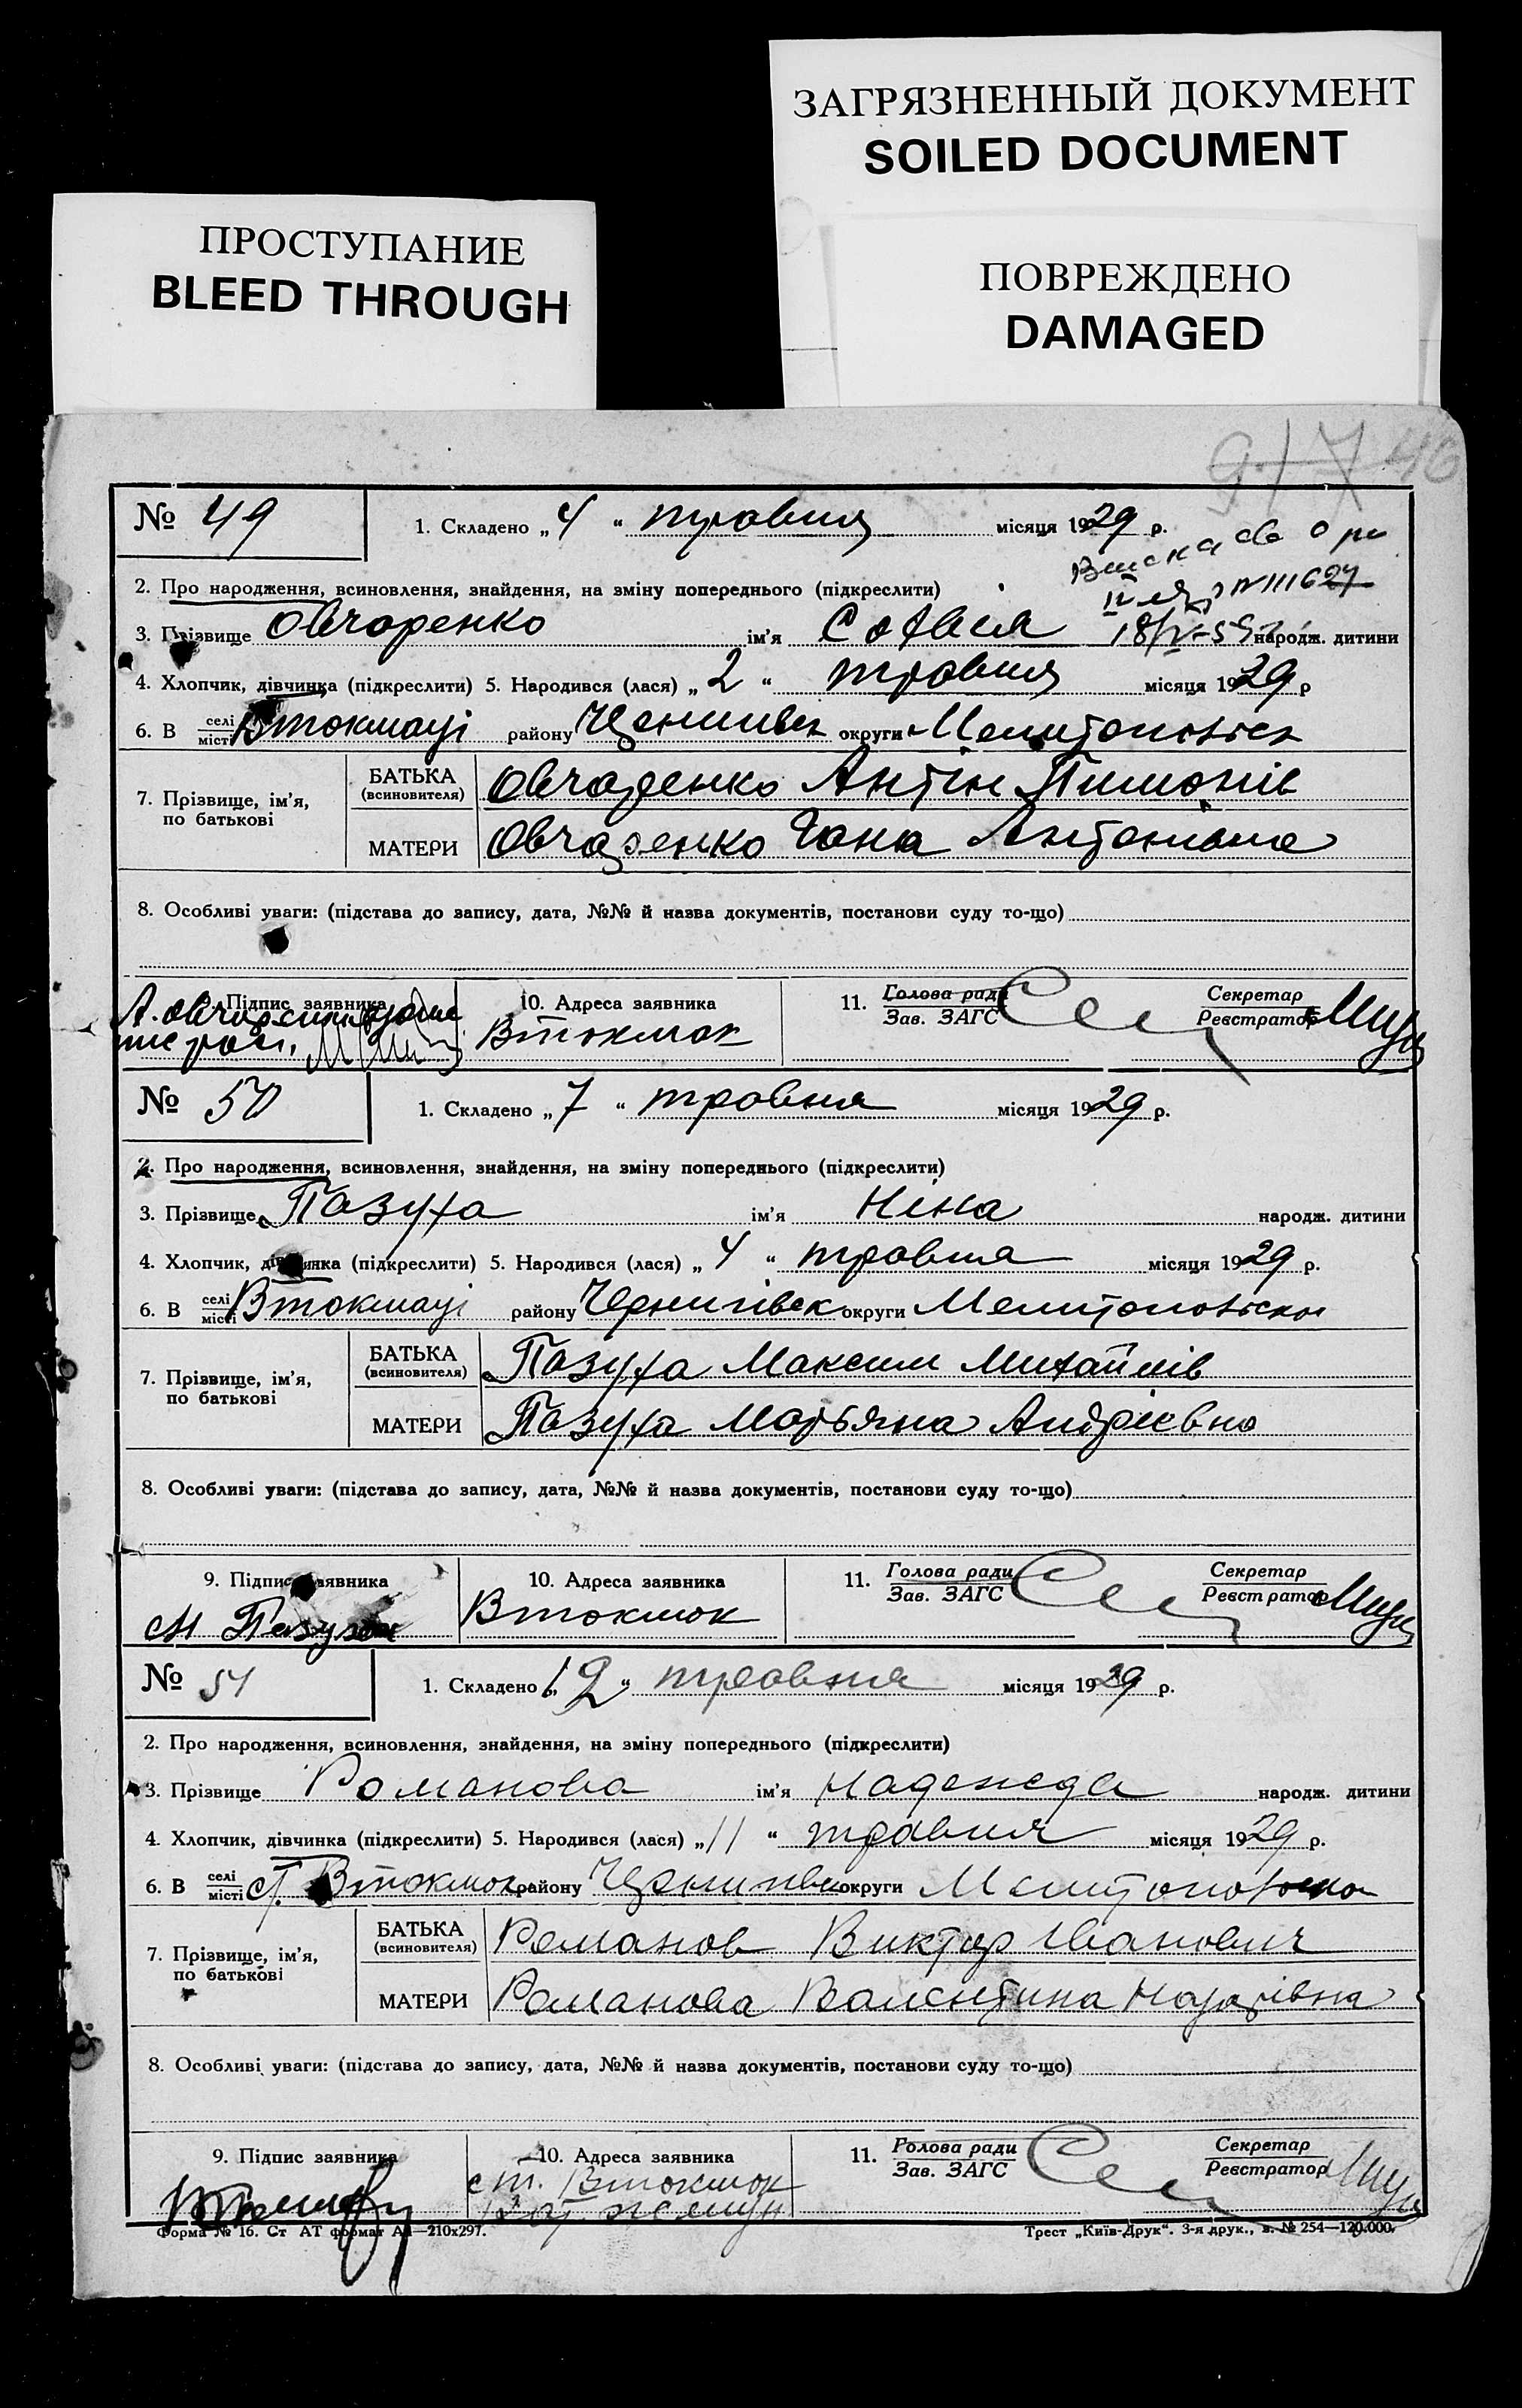 ЗАГРЯЗНЕННЫЙ ДОКУМЕНТ
SOILED DOCUMENT
ПРОСТУПАНИЕ
BLEED THROUGH
ПОВРЕЖДЕНО
DAMAGED
№ 49 1. Складено „ 4 “ травня місяця 1929 р.
2. Про народження, всиновлення, знайдення, на зміну попереднього (підкреслити)
3. Прізвище Овчаренко ім'я Софвія народж. дитини
4. Хлопчик, дівчинка (підкреслити) 5. Народився (лася) „ 2 “ травня місяця 1929 р
6. В селі місті Втокмаці району округи
7. Прізвище, ім'я, по батькові
БАТЬКА (всиновителя) Овчаренко Антін Пимонів
МАТЕРИ Овчаренко Гана Антонівна
8. Особливі уваги: (підстава до запису, дата, №№ й назва документів, постанови суду то-що)
Підпис заявника 10. Адреса заявника 11. Голова ради Зав. ЗАГС Секретар Реєстратор
Втокмак
№ 50 1. Складено „ 7 “ травня місяця 1929 р.
2. Про народження, всиновлення, знайдення, на зміну попереднього (підкреслити)
3. Прізвище Пазуха ім'я Ніна народж. дитини
4. Хлопчик, дівчинка (підкреслити) 5. Народився (лася) „ 4 “ травня місяця 1929 р.
6. В селі місті Втокмаці району Чернигівськ округи
7. Прізвище, ім'я, по батькові
БАТЬКА (всиновителя) Пазуха Максим Михайлів
МАТЕРИ Пазуха Марьяна Андрієвна
8. Особливі уваги: (підстава до запису, дата, №№ й назва документів, постанови суду то-що)
9. Підпис заявника 10. Адреса заявника 11. Голова ради Зав. ЗАГС Секретар Реєстратор
М Пазуха Втокмак
№ 51 1. Складено „ 12 “ травня місяця 1929 р.
2. Про народження, всиновлення, знайдення, на зміну попереднього (підкреслити)
3. Прізвище Романова ім'я Надежда народж. дитини
4. Хлопчик, дівчинка (підкреслити) 5. Народився (лася) „ 11 “ травня місяця 1929 р.
6. В селі місті ст. Втокмак району округи
7. Прізвище, ім'я, по батькові
БАТЬКА (всиновителя) Романов Виктор Іванович
МАТЕРИ Романова Валентина
8. Особливі уваги: (підстава до запису, дата, №№ й назва документів, постанови суду то-що)
9. Підпис заявника 10. Адреса заявника 11. Голова ради Зав. ЗАГС Секретар Реєстратор
ст. Втокмак
Форма № 16. Ст АТ формат А4—210х297. Трест „Київ-Друк“. 3-я друк., з. № 254—120.000.